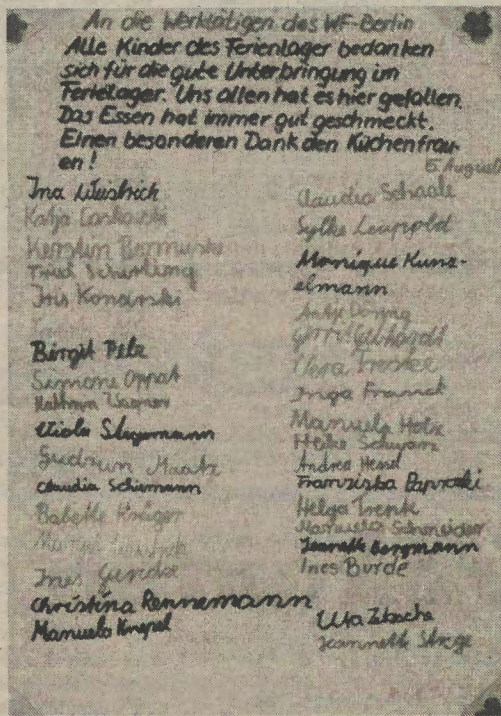 An die Werktätigen des WF-Berlin
Alle Kinder des Ferienlager bedanken
sich für die gute Unterbringung im
Ferielager. Uns allen hat es hier gefallen.
Das Essen hat immer gut geschmeckt.
Einen besonderen Dank den Küchenfrau-
en!
5. August
Ina Weistrich
Katja
Kerstin
Iris Konarski
Birgit Pelz
Simone Oppat
Kathrin Wagner
Viola Stegemann
Gudrun Maatz
Claudia Schiemann
Babette Krüger
Ines Gerda
Christina Rennemann
Manuela Knepel
Claudia Schaale
Sylke Leupold
Monique Kunz-
elmann
Antje
Vera
Inga Franck
Manuela Hotz
Heike Schwarz
Andrea Hensel
Franziska Paprocki
Helga Trenk
Manuela Schneider
Jeanette Bergmann
Ines Burde
Uta Zetzsche
Jeannette Stege